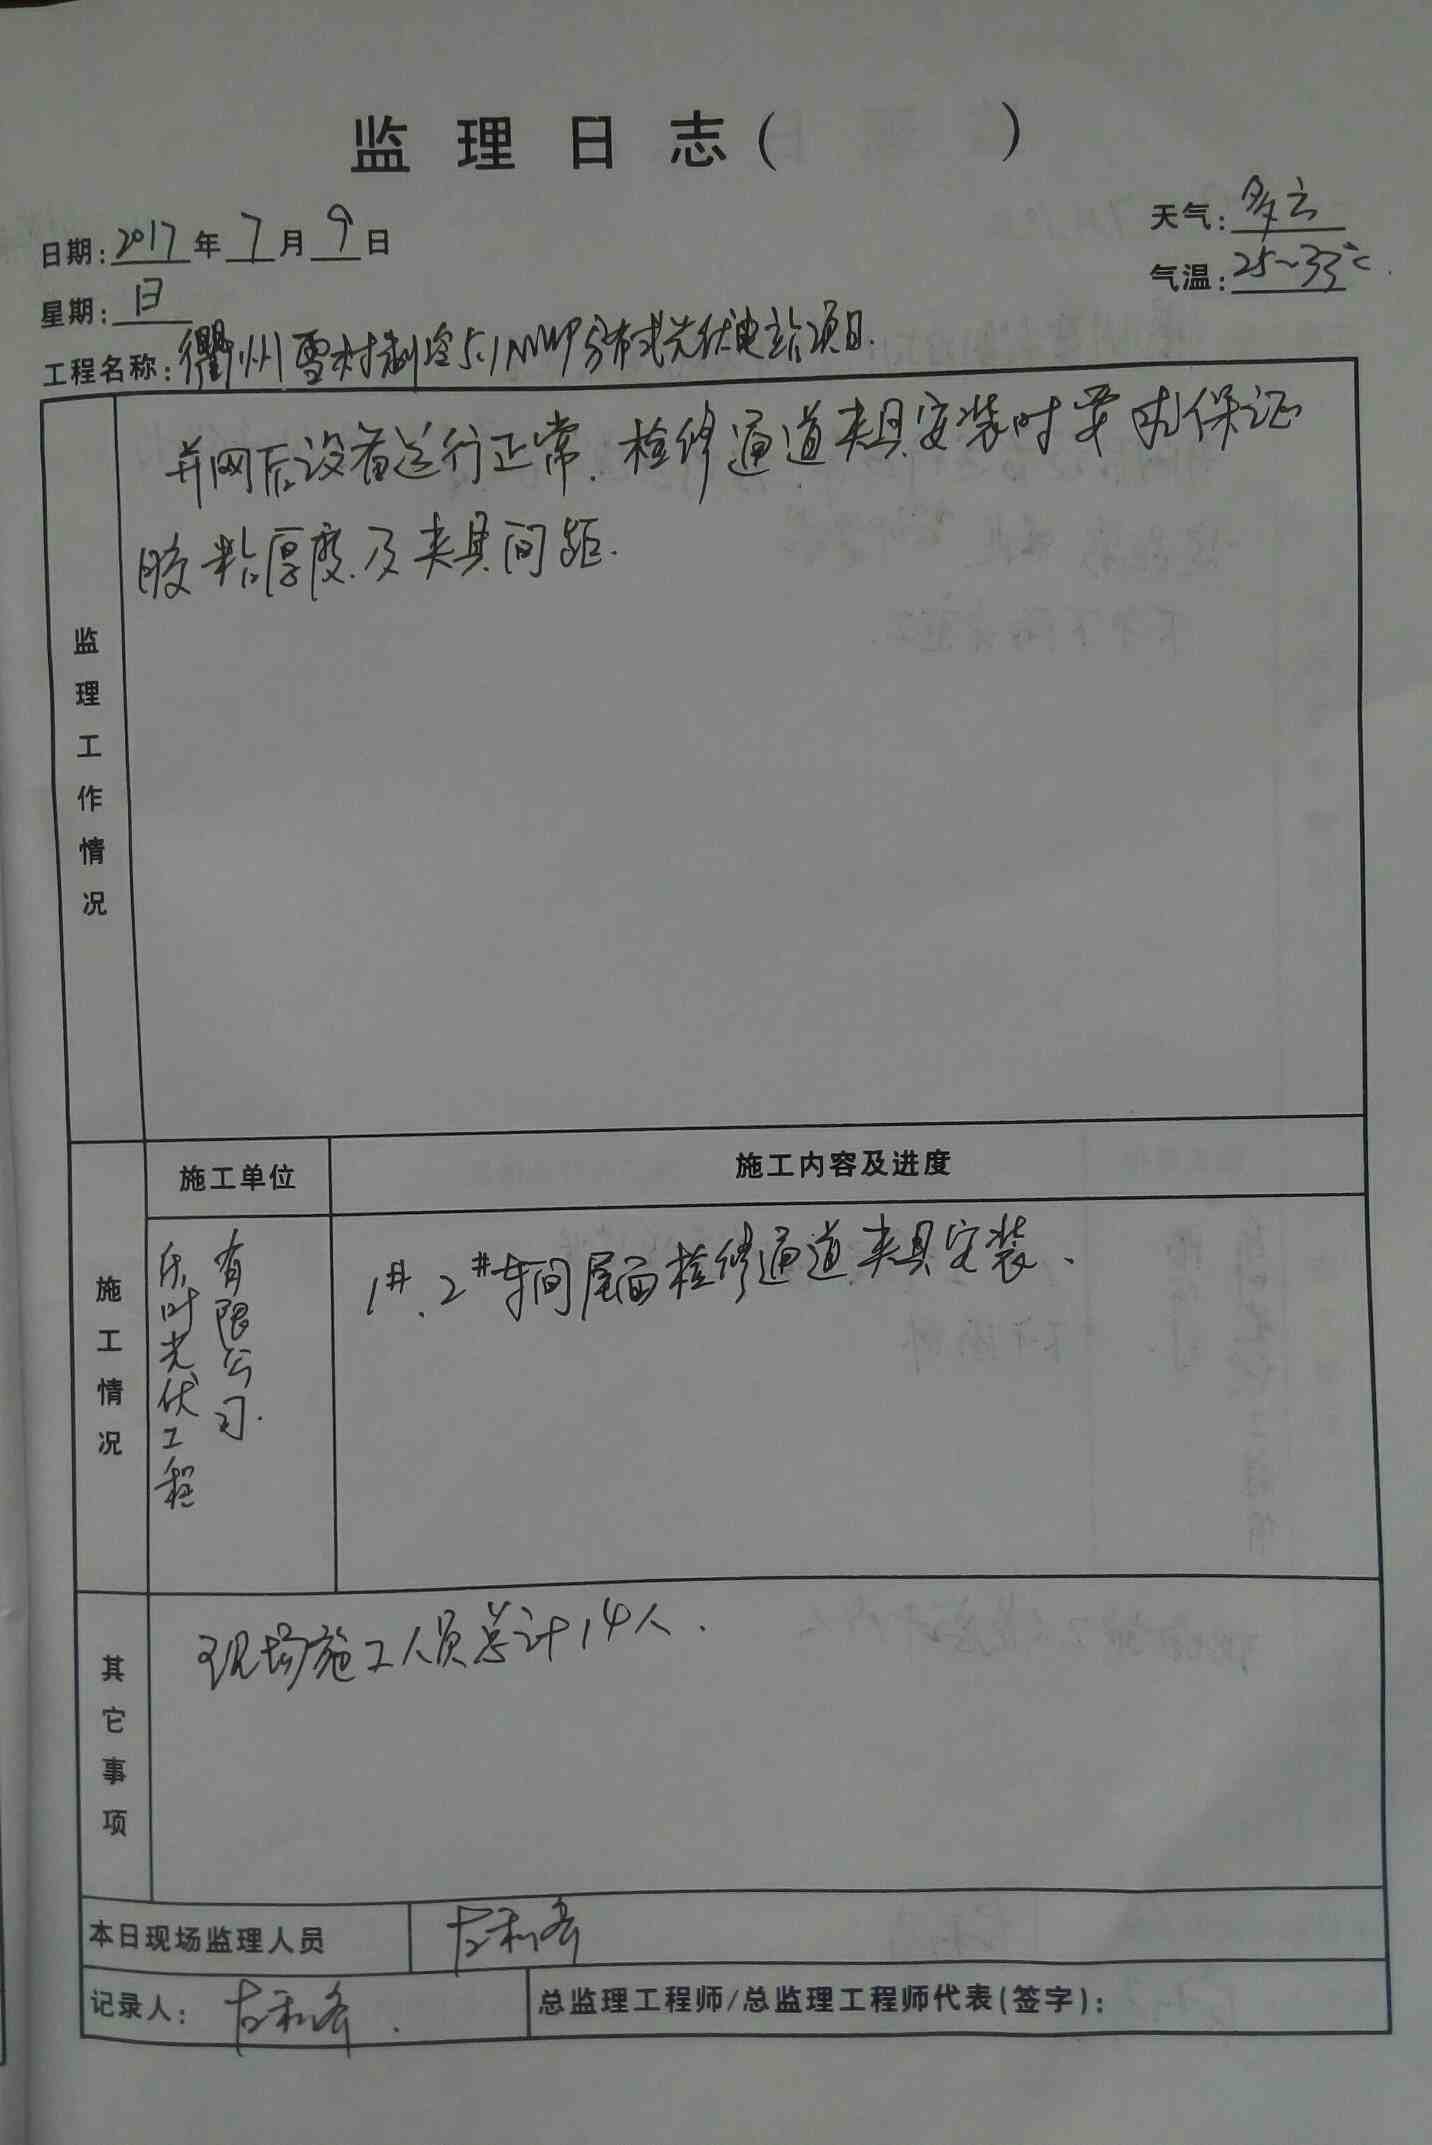 监理日志(          )
日期:2017年7月9日
天气:多云
星期:日
气温:25~33℃.
工程名称:衢州雪村制冷5.1MWP分布式光伏电站项目.
监理工作情况
并网后设备运行正常.检修通道夹具安装时要求保证
胶粘厚度.及夹具间距.
施工情况
施工单位
施工内容及进度
乐叶光伏工程
有限公司.
1#、2#车间屋面检修通道夹具安装.
其它事项
现场施工人员总计14人.
本日现场监理人员
记录人:
总监理工程师/总监理工程师代表(签字):